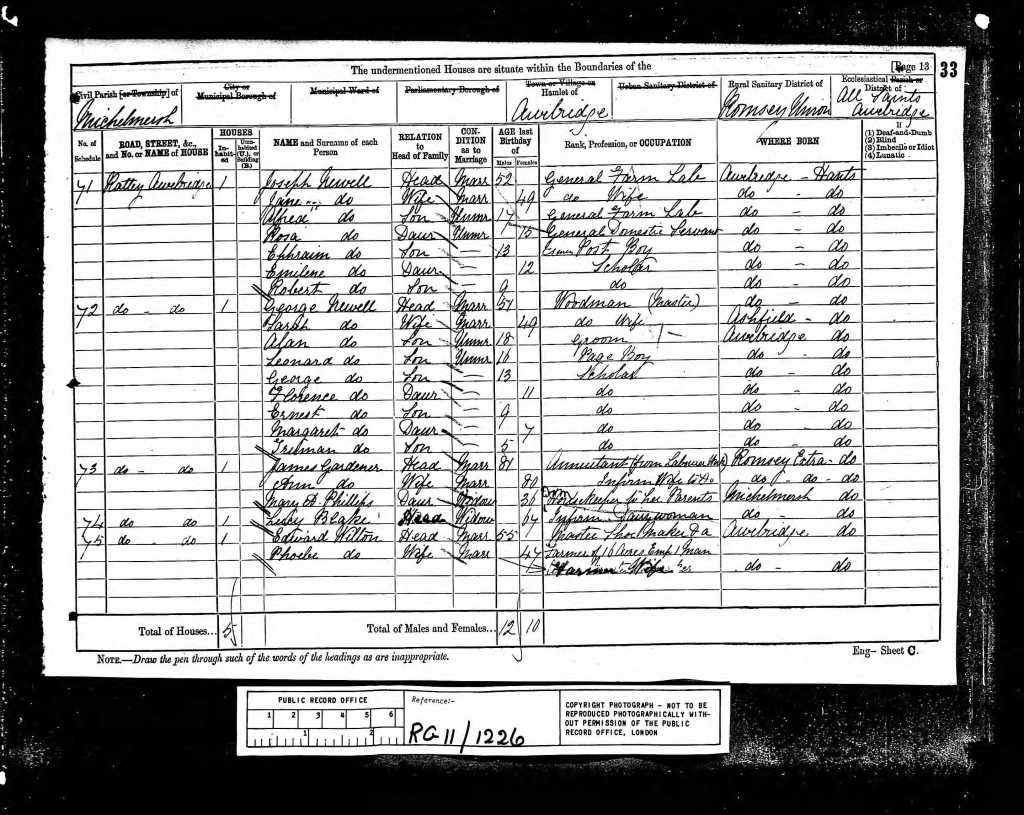 The undermentioned Houses are situate within the Boundaries of the [Page 13 33
Civil Parish [or Township] of City or Municipal Borough of Municipal Ward of Parliamentary Borough of Town or Village or Hamlet of Urban Sanitary District of Rural Sanitary District of Ecclesiastical Parish or District of
Michelmersh Awbridge Romsey Union All Saints Awbridge
No. of Schedule ROAD, STREET, &c., and No. or NAME of HOUSE HOUSES Inhabited Uninhabited (U.), or Building (B.) NAME and Surname of each Person RELATION to Head of Family CONDITION as to Marriage AGE last Birthday of Males Females Rank, Profession, or OCCUPATION WHERE BORN If (1) Deaf-and-Dumb (2) Blind (3) Imbecile or Idiot (4) Lunatic
71 Awbridge 1 Joseph Newell Head Marr 52 General Farm Lab Awbridge - Hants
Jane do Wife Marr 49 do Wife do - do
Alfred do Son Unmr 17 General Farm Lab do - do
Rosa do Daur Unmr 15 General Domestic Servant do - do
Ephraim do Son 13 Post Boy do - do
Emilene do Daur 12 Scholar do - do
Robert do Son 9 do do - do
72 do - do 1 George Newell Head Marr 51 Woodman (Master) do - do
Sarah do Wife Marr 49 do Wife Ashfield - do
Alan do Son Unmr 18 Groom Awbridge do
Leonard do Son Unmr 16 Page Boy do - do
George do Son 13 Scholar do - do
Florence do Daur 11 do do - do
Ernest do Son 9 do do - do
Margaret do Daur 7 do do do
Truman do Son 5 do do - do
73 do - do 1 James Gardener Head Marr 81 Annuitant (from Labourer Romsey Extra - do
Ann do Wife Marr 80 Infirm Wife to Do do - do - do
Mary A Phillips Daur Widow Housekeeper to her Parents Michelmersh do
74 do do 1 Blake Head Widow 64 Infirm Dairywoman do - do
75 do do 1 Edward Wilton Head Marr 55 Master Shoe Maker & a Awbridge do
Phoebe do Wife Marr 47 Farmer of 16 Acres Emp 1 Man
Wife do - do
Total of Houses... 5 Total of Males and Females... 12 10
NOTE.—Draw the pen through such of the words of the headings as are inappropriate. Eng- Sheet C.
PUBLIC RECORD OFFICE
1 2 3 4 5 6
1 2
Reference:-
RG 11/1226
COPYRIGHT PHOTOGRAPH - NOT TO BE
REPRODUCED PHOTOGRAPHICALLY WITH-
OUT PERMISSION OF THE PUBLIC
RECORD OFFICE, LONDON